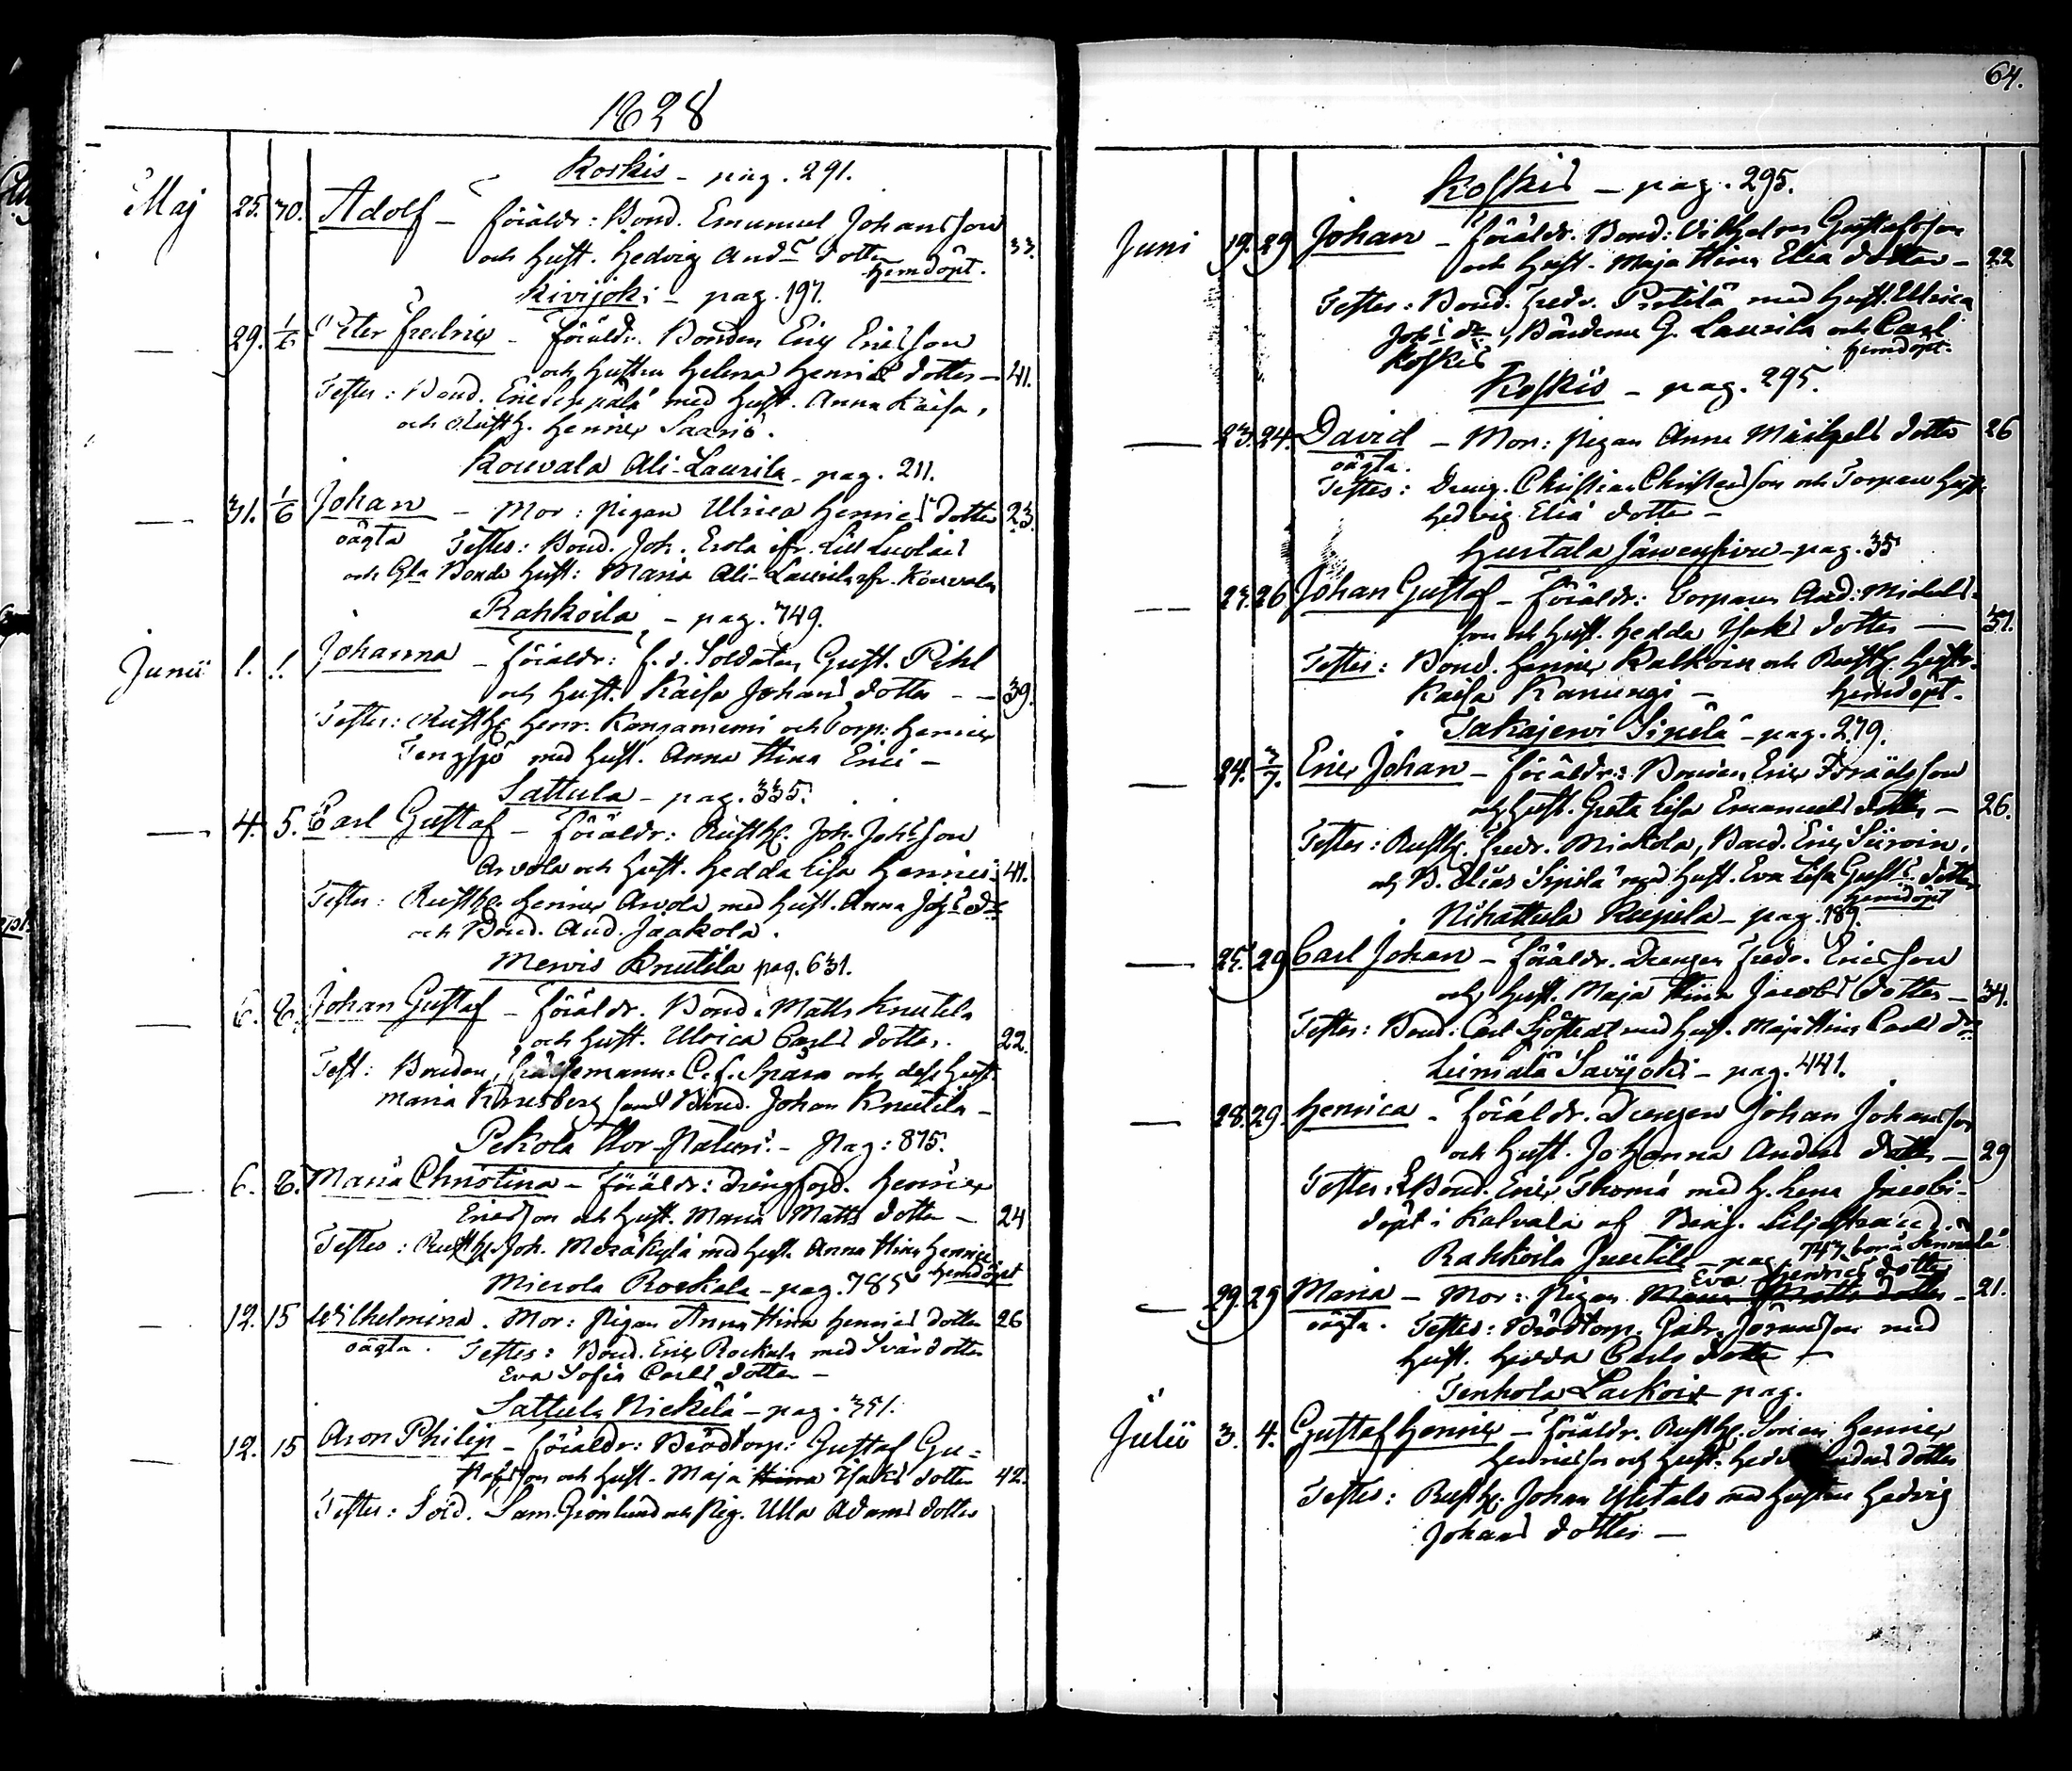 1828
Koskis - pag. 291.
Maj 25. 30. Adolf - föräldr: Bond. Emanuel Johansson
och hust. Hedvig And:s dotter 33.
hemdöpt.
Kivijoki - pag. 197.
29. 1/6 Peter Fredric - föräldr. Bonden Eric Ericsson
och hustru Helena Henrics dotter - 41.
Testes: Bond. Eric med hust. Anna Kaisa,
och Rusth. Henric Saario.
Kouvala Ali-Laurila - pag. 211.
31. 1/6 Johan - Mor: pigan Ulrica Henrics dotter 23.
oägta Testes: Bond. Joh. Erola ifr. Lill
och Gla Bonde hust: Maria Ali-Laurila ifr. Kouvala
Rahkoila - pag. 749.
Junii 1. 1. Johanna - föräldr: f.d. Soldaten Gust. Pihl
och hust. Kaisa Johans dotter - - 39.
Testes: Rusth. Henr. Kangasniemi och Torp: Henric
Tengsjö med hust. Anna Stina Erici -
Sattula - pag. 335.
4. 5. Carl Gustaf - föräldr: Rusth. Joh. Johsson
Arvola och hust. Hedda Lisa Henrics 41.
Testes: Rusth. Henric Arvola med hust. Anna Joh:s dr
och Bond. And. Jaakola.
Mervis Knutila pag. 631.
6. 8. Johan Gustaf - föräldr. Bond: Matts Knutila
och hust. Ulrica Carls dotter. 22.
Test: Bonden, C.f. Spåra och dess hust.
Maria samt Bond. Johan Knutila -
Pekola - Pag: 875.
6. 8. Maria Christina - föräldr: Henric
Ericsson och hust. Maria Matts dotter - 24
Testes: Rusth. Joh. Meräkylä med hust. Anna Stina Henrics
hemdöpt
Mierola Rockala - pag. 785
12. 15 Wilhelmina. Mor: Pigan Anna Stina Henrics dotter 26
oägta. Testes: Bond. Eric Rockala med Svärdotter
Eva Sofia Carls dotter -
Sattula Nickilä - pag. 351.
12. 15 Aron Philip - föräldr: Brödtorp: Gustaf Gu=
stafsson och hust. Maja Stina Isaks dotter 42.
Testes: Sold. Sam. Grönlund och Pig. Ulla Adams dotter
64.
Koskis - pag. 295.
Juni 19. 29 Johan - föräldr. Bond: Vilhelm Gustafsson
och hust. Maja Stina Elia dotter - 22
Testes: Bond. Fredr. Prttilä med hust. Ulrica
Joh:s dr, Bönderne G. Laurila och Carl
Koskis hemdöpt.
Koskis - pag. 295.
23. 24. David - Mor: pigan Anna Michels dotter 26
oägta.
Testes: Dreng. Christian Christersson och Torpare hust.
Hedvig Elia dotter -
pag. 35
23. 26 Johan Gustaf - föräldr: Torparen And: Michels-
son och hust. Hedda Isaks dotter - 31.
Testes: Bond. Henric och Rusth. hustr.
Kaisa - hemdöpt.
Takajervi Sipilä - pag. 279.
24. 3/7. Eric Johan - föräldr: Bonden Eric Isräelsson
och hust. Greta Lisa Emanuels dotter - 26.
Testes: Rusth. Fredr. Mickola, Bond. Eric Siiroin.
och B. Elias Sipilä med hust. Eva Lisa Gust:s dotter
hemdöpt
Nihattula - pag. 189.
25. 29 Carl Johan - föräldr. Drengen Fredr. Ericsson
och hust. Maja Stina Jacobs dotter - 34.
Testes: Bond: Carl Sjöstedt med hust. Maja Stina Carls dr
Leiniälä Savijoki - pag. 441.
28. 29. Henrica - föräldr. Drengen Johan Johansson
och hust. Johanna Anders dotter - 29
Testes: Bond. Eric Thomä med h. Lena Jacobi-
döpt i Kalvala af Liljestrand.
Rahkoila - pag. 743,
Eva Henrics dotter
29. 29 Maria - Mor: Pigan Maria Matts dotter - 21.
oägta. Testes: Brödtorp. Gabr. Göransson med
hust. Hedda Carls dotter -
Tenhola - pag.
Julii 3. 4. Gustaf Henric - föräldr. Rusth. Sonen Henric
Henricsson och hust. dotter
Testes: Rusth. Johan med hustru Hedvig
Johans dotter -